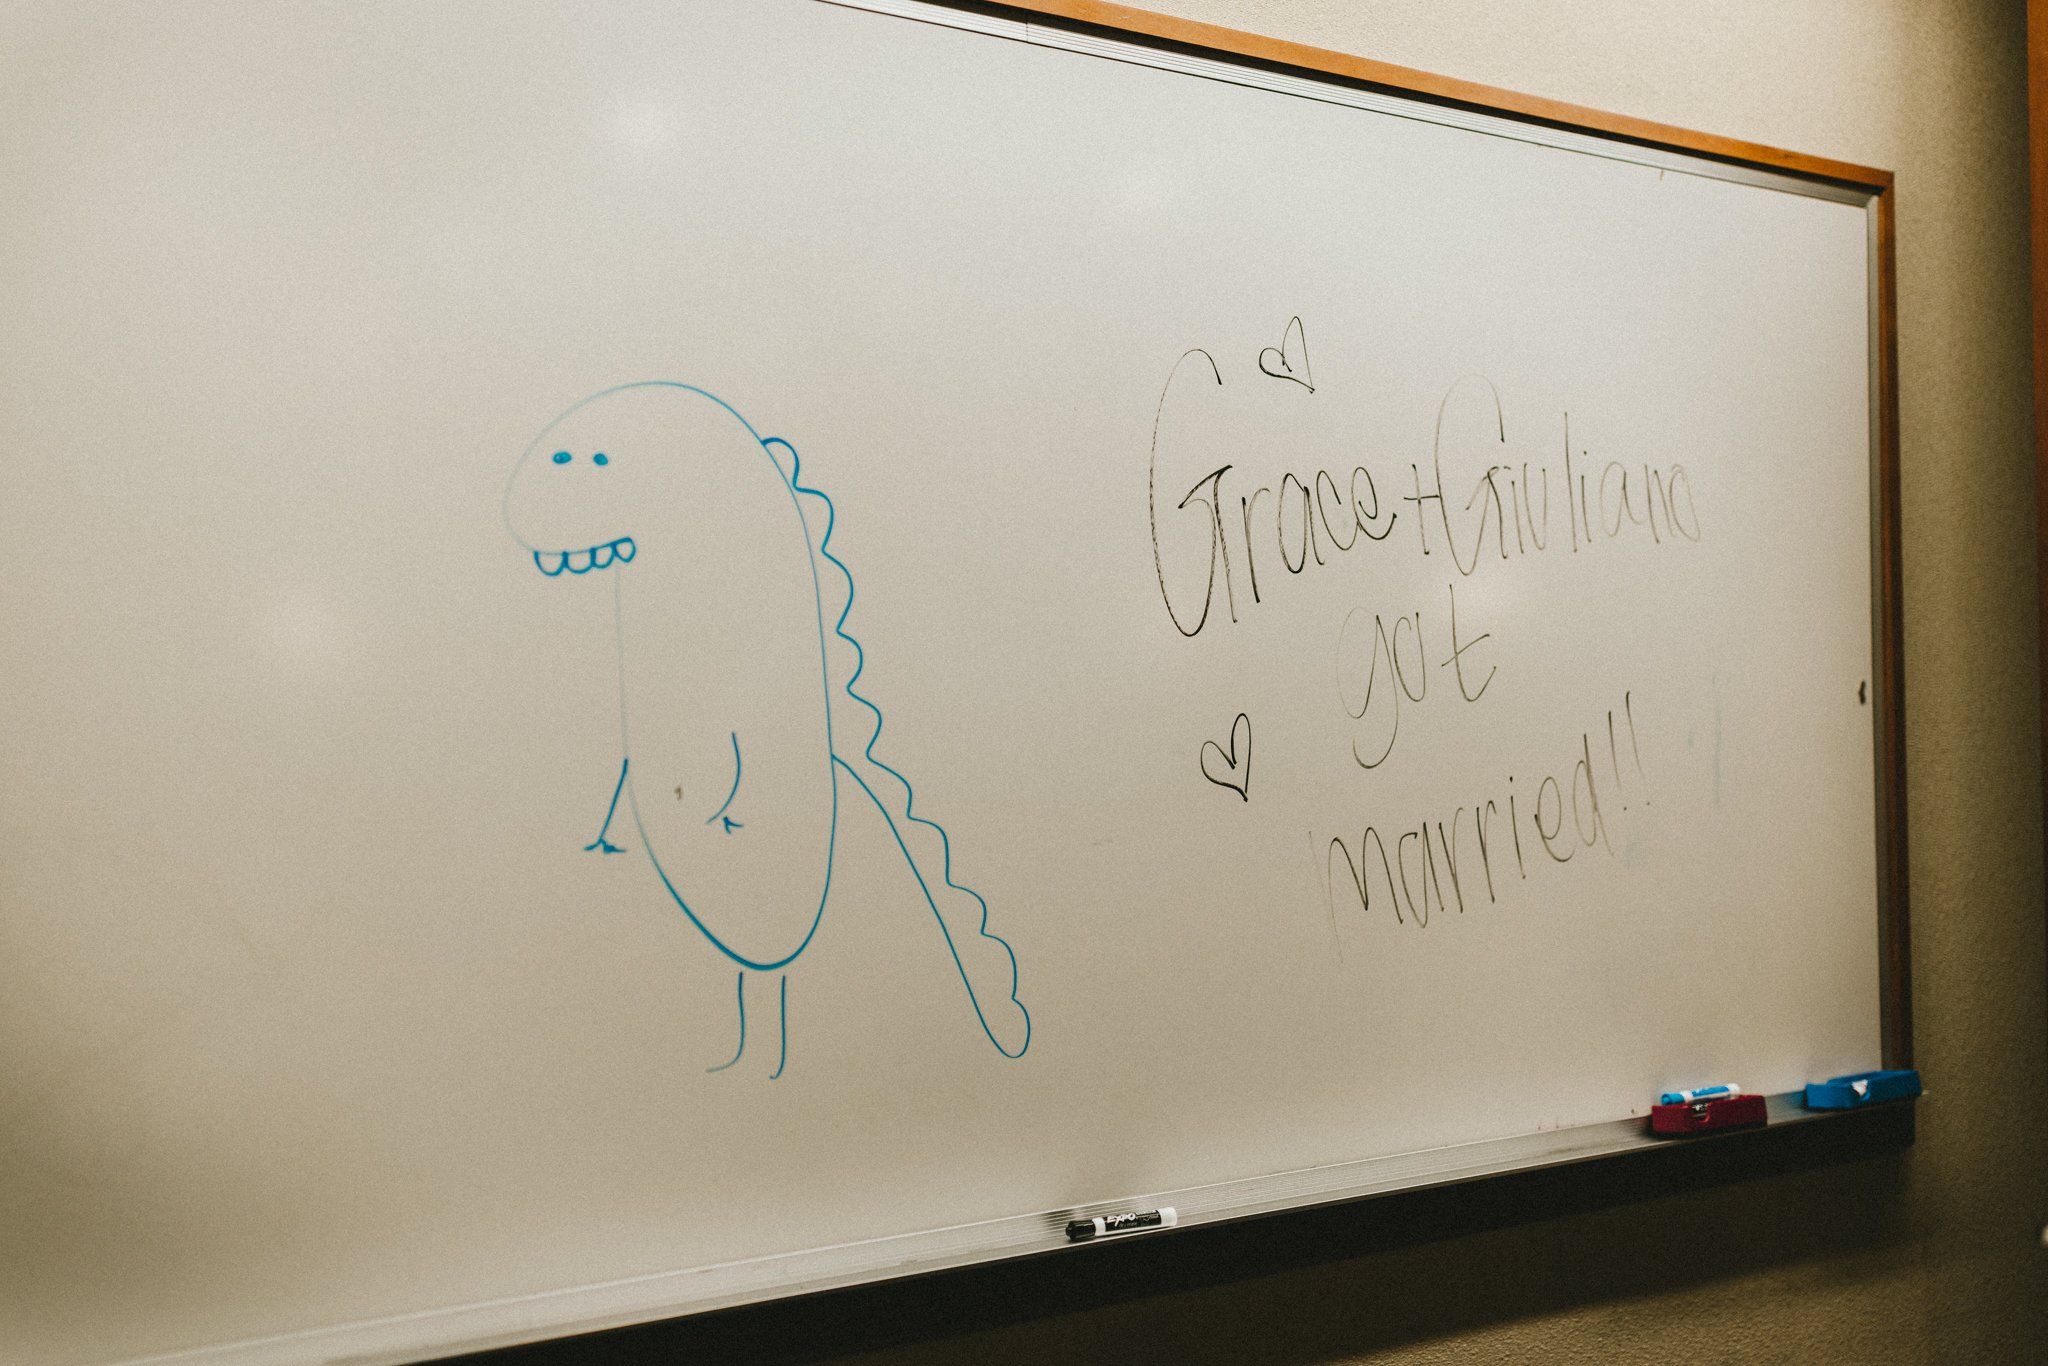 Grace + Giuliano
got
married!!
EXPO